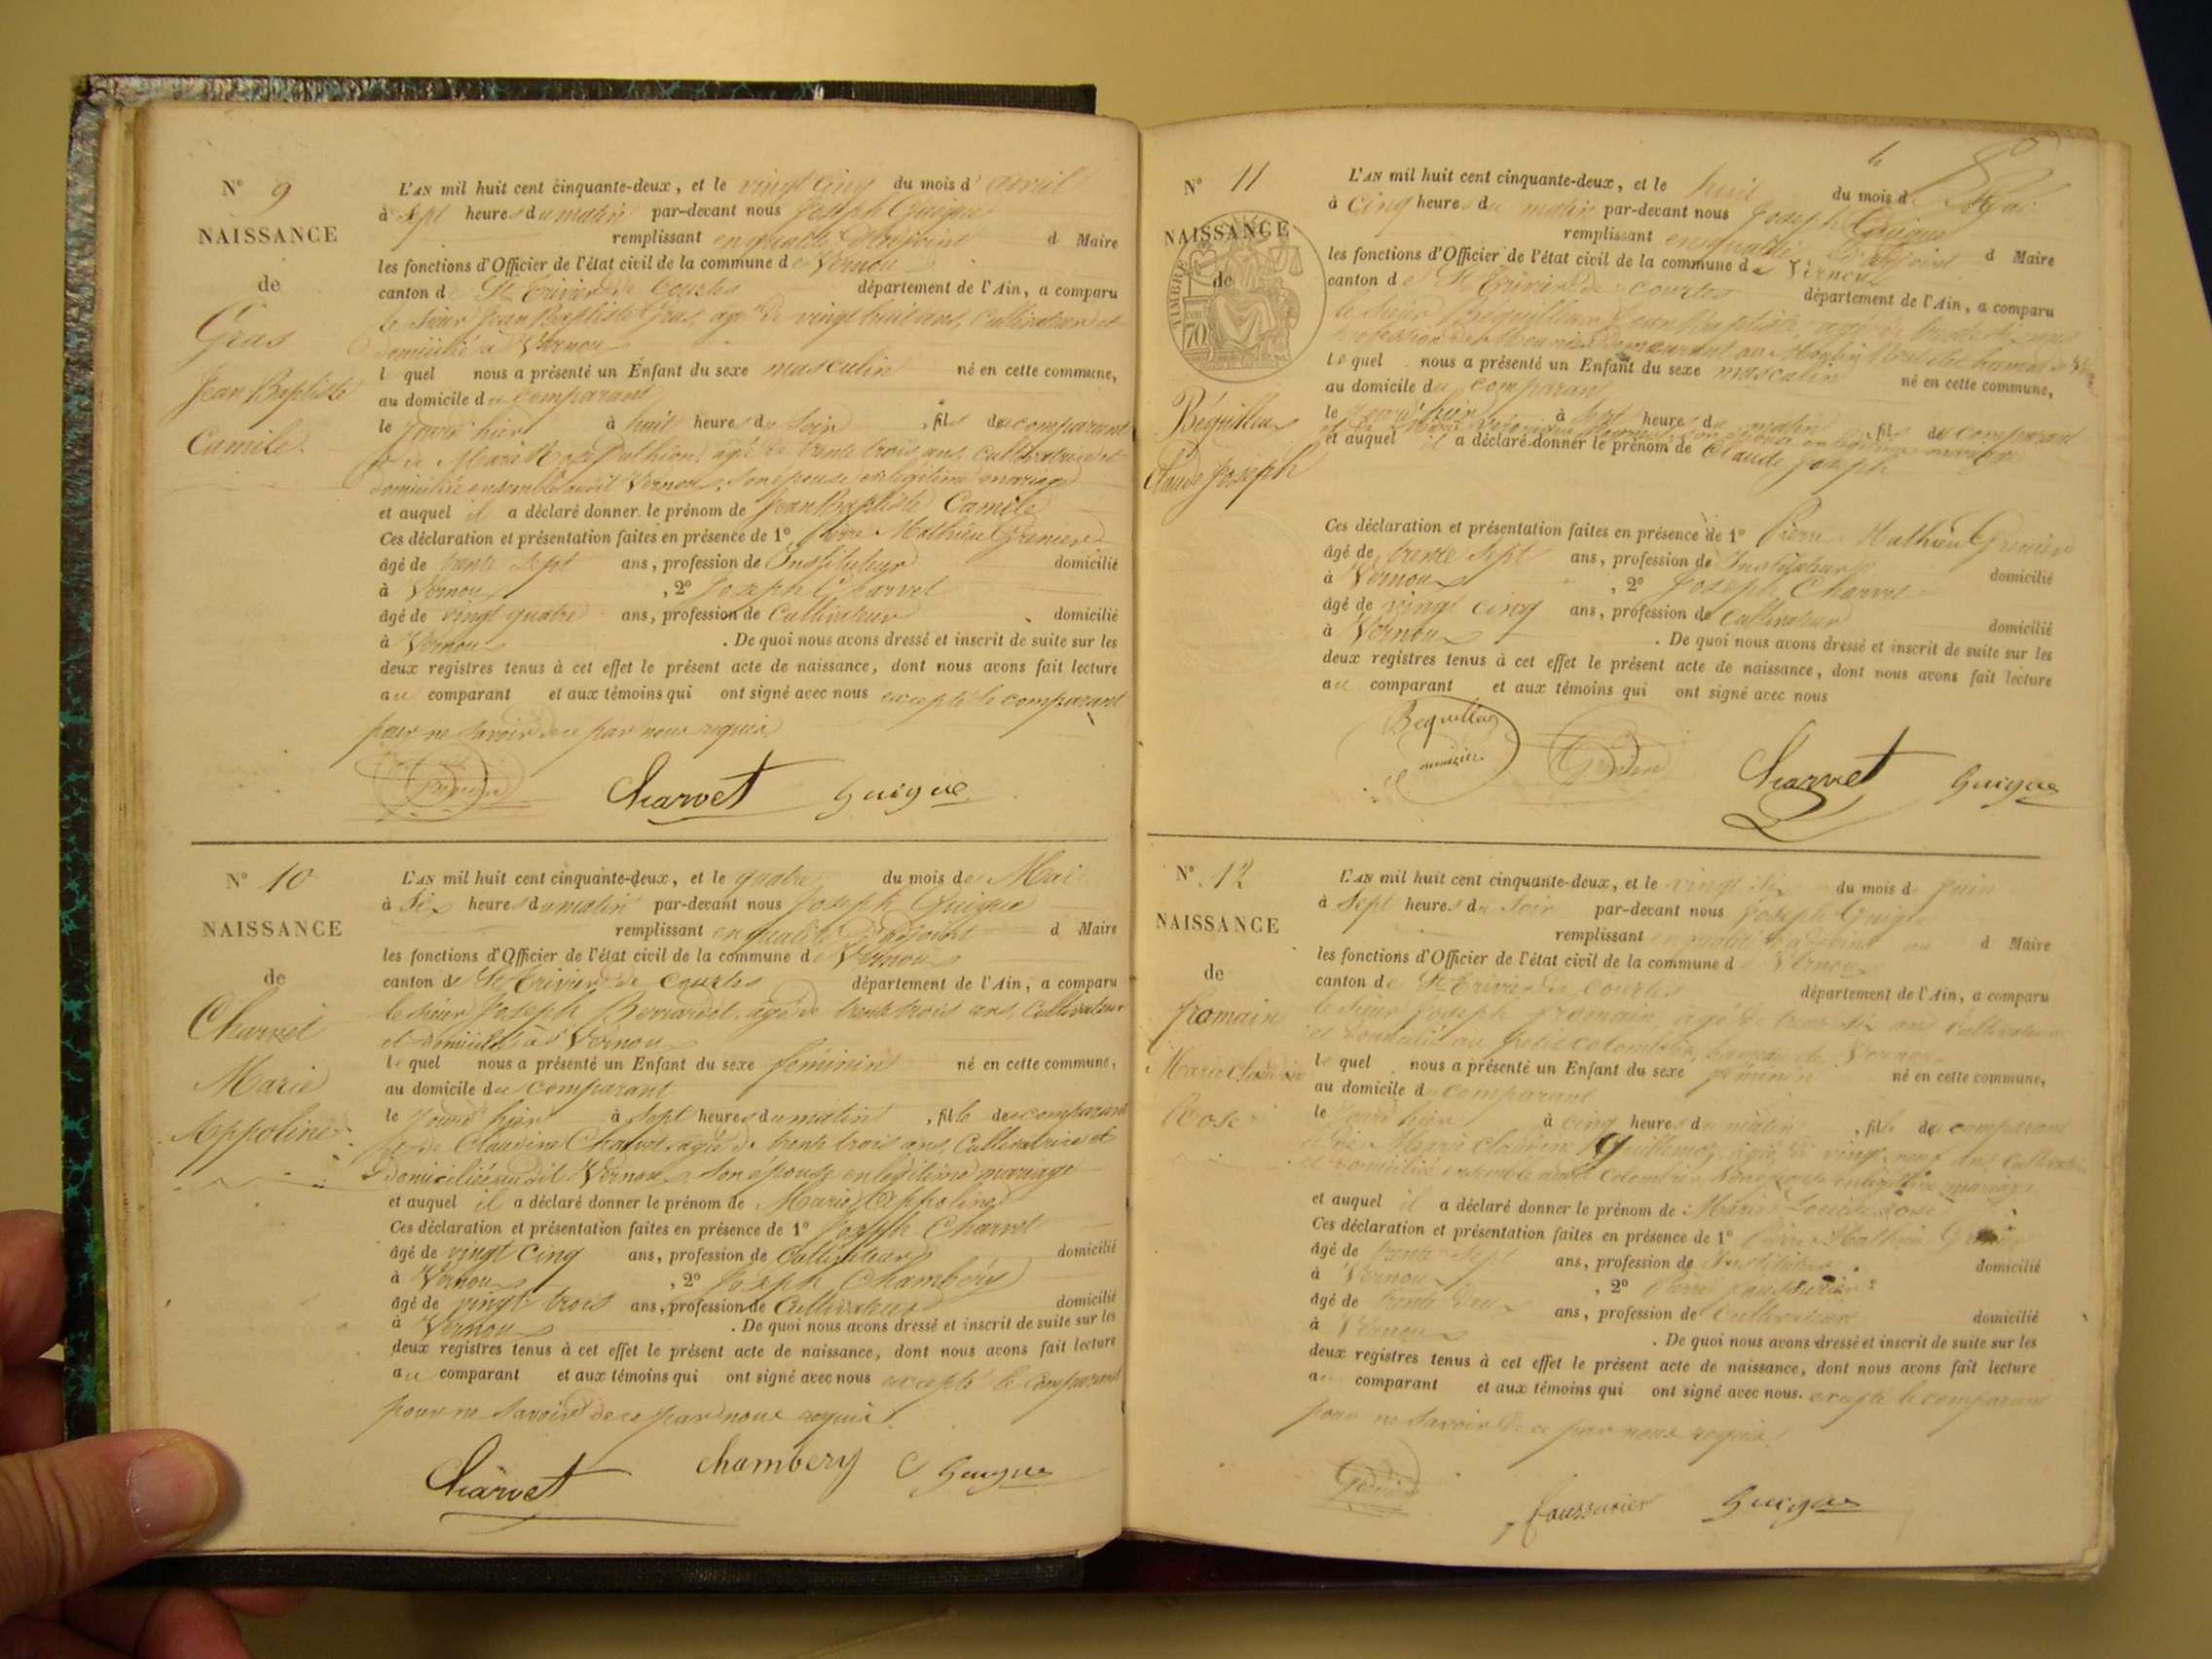 N° 9
NAISSANCE
de
Gras
Jean Baptiste
Camile.
L'AN mil huit cent cinquante-deux, et le vingt cinq du mois d'avril
à sept heures du matin par-devant nous Joseph Guigue
remplissant en qualité d'adjoint d Maire
les fonctions d'Officier de l'état civil de la commune de Vernoux
canton de St Trivier de Courtes département de l'Ain, a comparu
le Sieur Jean Baptiste Gras, agé de vingt huit ans, Cultivateur et
domicilié à Vernoux
l quel nous a présenté un Enfant du sexe masculin né en cette commune,
au domicile du comparant
le jourd'hier à huit heures du Soir, fils du comparant
et de Marie Rose agée de trente trois ans, Cultivatrice et
domiciliée ensemble audit Vernoux, Son épouse en légitime mariage
et auquel il a déclaré donner le prénom de Jean Baptiste Camile
Ces déclaration et présentation faites en présence de 1° Pierre Mathieu Grenier
âgé de trente sept ans, profession de Instituteur domicilié
à Vernoux, 2° Joseph Charvet
âgé de vingt quatre ans, profession de Cultivateur domicilié
à Vernoux. De quoi nous avons dressé et inscrit de suite sur les
deux registres tenus à cet effet le présent acte de naissance, dont nous avons fait lecture
au comparant et aux témoins qui ont signé avec nous excepté le comparant
pour ne Savoir de ce par nous requis
Grenier Charvet Guigue
N° 10
NAISSANCE
de
Charvet
Marie
Appoline
L'AN mil huit cent cinquante-deux, et le quatre du mois de Mai
à Six heures du matin par-devant nous Joseph Guigue
remplissant en qualité d'adjoint d Maire
les fonctions d'Officier de l'état civil de la commune de Vernoux
canton de St Trivier de Courtes département de l'Ain, a comparu
le Sieur Joseph agé de trente trois ans, Cultivateur
et domicilié à Vernoux
le quel nous a présenté un Enfant du sexe féminin né en cette commune,
au domicile du comparant
le jourd'hier à Sept heures du matin, fille du comparant
et de Claudine agée de trente trois ans, Cultivatrice et
domiciliée audit Vernoux Son épouse en légitime mariage
et auquel il a déclaré donner le prénom de Marie Appoline
Ces déclaration et présentation faites en présence de 1° Joseph Charvet
âgé de vingt cinq ans, profession de Cultivateur domicilié
à Vernoux, 2° Joseph Chambéry
âgé de vingt trois ans, profession de Cultivateur domicilié
à Vernoux. De quoi nous avons dressé et inscrit de suite sur les
deux registres tenus à cet effet le présent acte de naissance, dont nous avons fait lecture
au comparant et aux témoins qui ont signé avec nous excepté le comparant
pour ne Savoir de ce par nous requis.
Charvet chambery Guigue
6
N° 11
NAISSANCE
de
TIMBRE
70
Béquilleux
Claude Joseph
L'AN mil huit cent cinquante-deux, et le huit du mois de Mai
à Cinq heures du matin par-devant nous Joseph Guigue
remplissant en qualité d'adjoint d Maire
les fonctions d'Officier de l'état civil de la commune de Vernoux
canton de St Trivier de Courtes département de l'Ain, a comparu
le Sieur Béquilleux Jean Baptiste, agé de
profession de Meunier demeurant au Moulin
le quel nous a présenté un Enfant du sexe masculin né en cette commune,
au domicile du comparant
le jourd'hier à Sept heures du matin, fils du comparant
et auquel il a déclaré donner le prénom de Claude Joseph
Ces déclaration et présentation faites en présence de 1° Pierre Mathieu Grenier
âgé de trente Sept ans, profession de Instituteur domicilié
à Vernoux, 2° Joseph Charvet
âgé de vingt cinq ans, profession de Cultivateur domicilié
à Vernoux. De quoi nous avons dressé et inscrit de suite sur les
deux registres tenus à cet effet le présent acte de naissance, dont nous avons fait lecture
au comparant et aux témoins qui ont signé avec nous
Grenier Charvet Guigue
N° 12
NAISSANCE
de
Romain
Marie
Rose
L'AN mil huit cent cinquante-deux, et le vingt Six du mois de Juin
à Sept heures du Soir par-devant nous Joseph Guigue
remplissant en qualité d'adjoint d Maire
les fonctions d'Officier de l'état civil de la commune d Vernoux
canton de St Trivier de Courtes département de l'Ain, a comparu
le Sieur Joseph Romain, agé de trente six ans Cultivateur
et domicilié au petit Colombier, hameau de Vernoux
le quel nous a présenté un Enfant du sexe féminin né en cette commune,
au domicile du comparant
le jourd'hier à cinq heures du matin, fille du comparant
et de Marie Claudine Guillemoz, agée de vingt neuf ans, Cultivatrice
et domiciliée ensemble audit Colombier, Son épouse en légitime mariage
et auquel il a déclaré donner le prénom de Marie Rose
Ces déclaration et présentation faites en présence de 1° Pierre Mathieu Grenier
âgé de trente Sept ans, profession de Instituteur domicilié
à Vernoux, 2° Pierre
âgé de trente deux ans, profession de Cultivateur domicilié
à Vernoux. De quoi nous avons dressé et inscrit de suite sur les
deux registres tenus à cet effet le présent acte de naissance, dont nous avons fait lecture
au comparant et aux témoins qui ont signé avec nous. excepté le comparant
pour ne Savoir de ce par nous requis.
Grenier Guigue